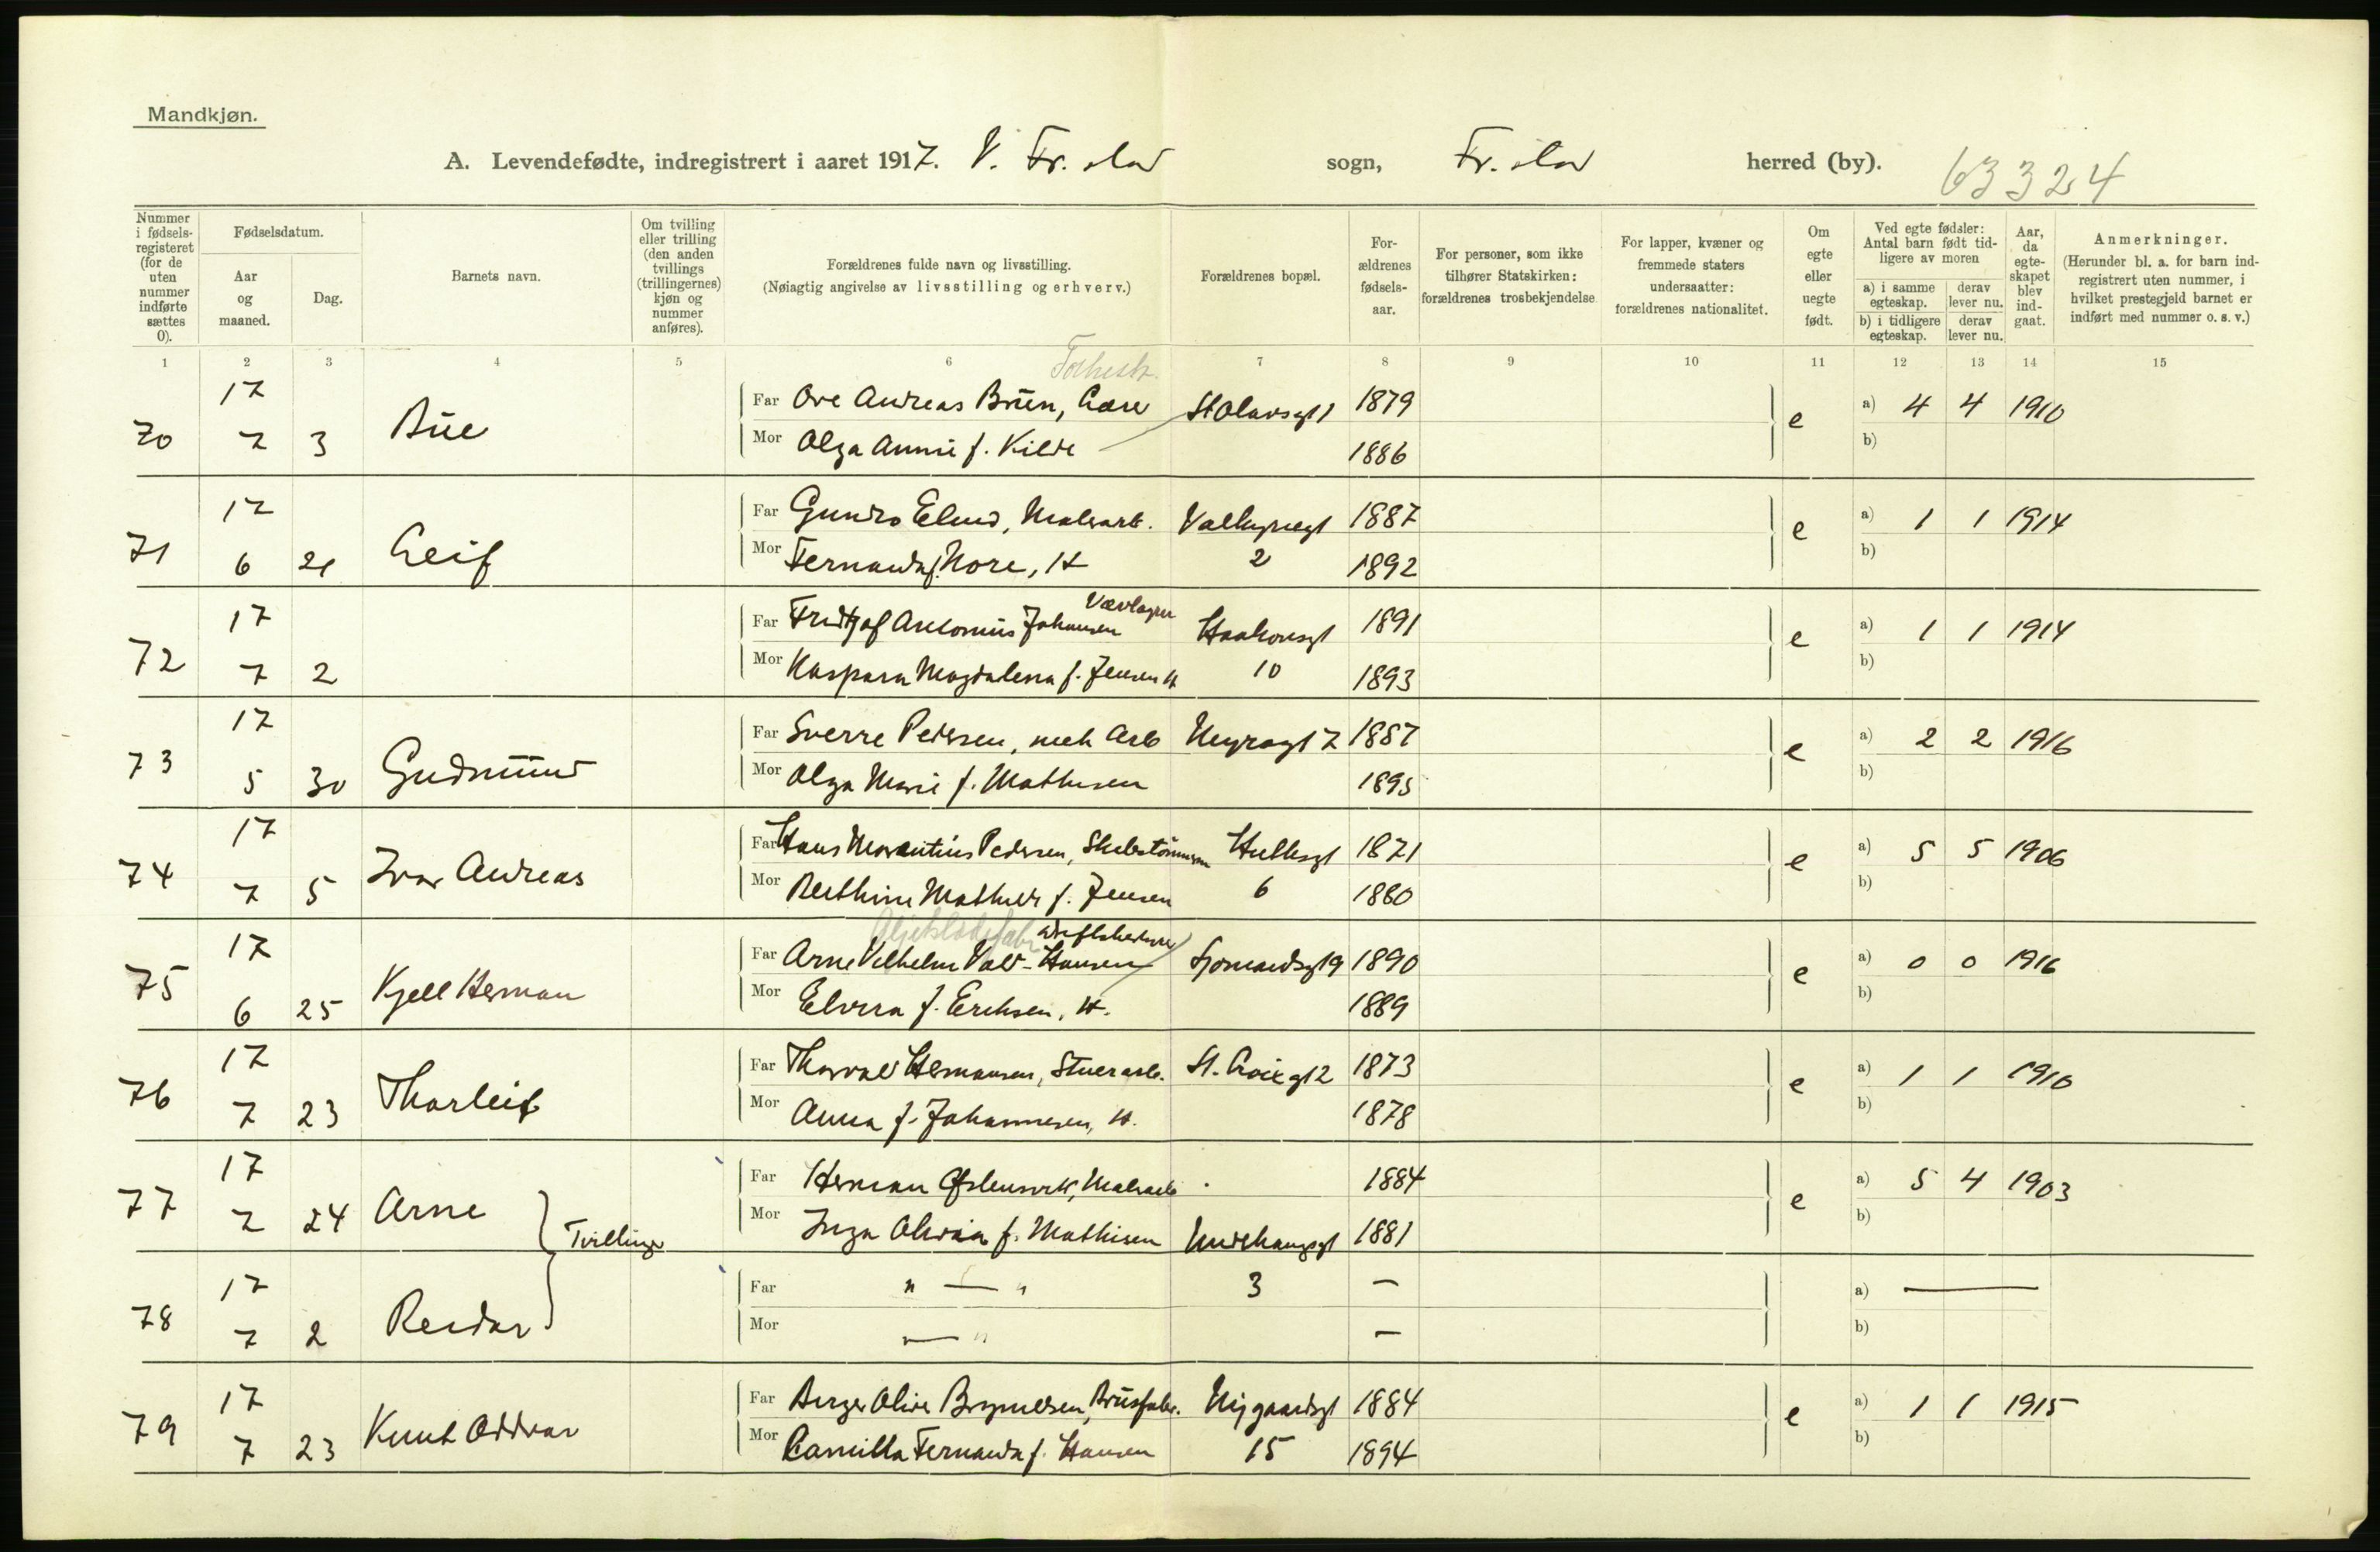 Mandkjøn.
A. Levendefødte, indregistrert i aaret 1917. V. Fr.stad sogn, Fr.stad herred (by). 63324
Nummer i fødselsregisteret (for de uten nummer indførte sættes 0).
Fødselsdatum.
Aar og maaned.
Dag.
Barnets navn.
Om tvilling eller trilling (den anden tvillings (trillingernes) kjøn og nummer anføres).
Forældrenes fulde navn og livsstilling.
(Nøiagtig angivelse av livsstilling og erhverv.)
Forældrenes bopæl.
Forældrenes fødselsaar.
For personer, som ikke tilhører Statskirken: forældrenes trosbekjendelse
For lapper, kvæner og fremmede staters undersaatter: forældrenes nationalitet.
Om egte eller uegte født.
Ved egte fødsler: Antal barn født tidligere av moren
a) i samme egteskap.
derav lever nu.
b) i tidligere egteskap.
derav lever nu.
Aar, da egteskapet blev indgaat.
Anmerkninger.
(Herunder bl. a. for barn indregistrert uten nummer, i hvilket prestegjeld barnet er indført med nummer o. s. v.)
1 2 3 4 5 6 7 8 9 10 11 12 13 14 15
17
Far Ove Andreas Brün, St Olavsgt 1 1879
70 7 3 e a) 4 4 1910
Mor Olga Annie f. Kilde 1886
b)
17
Far Gunro Elind, Malerarb. 1887
71 6 21 Leif e a) 1 1 1914
Mor Fernanda f. Nore, H 2 1892
b)
17
Far Fridtjof Antonius Johansen Haakonsgt 1891
72 7 2 e a) 1 1 1914
Mor Kaspara Magdalena f. Jensen H 10 1893
b)
17
Far Sverre Pedersen, mek Arb Nygaagt 7 1887
73 5 30 Gudmund e a) 2 2 1916
Mor Olga Marie f. Mathisen 1895
b)
17
Far Hans Morentius Pedersen, Skibstømmerm 1871
74 7 5 Ivar Andreas e a) 5 5 1906
Mor Berthine Mathilde f. Jensen 6 1880
b)
17
Far Arne Vilhelm Vold-Hansen 1890
75 6 25 Kjell Herman e a) 0 0 1916
Mor Elvira f. Erichsen, H. 1889
b)
17
Far Thorvald Hermansen, Stuerarb. St. Croixgt 2 1873
76 7 23 Thorleif e a) 1 1 1910
Mor Anna f. Johannesen, H. 1878
b)
17
Far Herman 1884
77 7 24 Arne e a) 5 4 1903
Mor Inga Olivia f. Mathisen 1881
b)
Tvillinger
17
Far " — " 3 —
78 7 2 Reidar a) —
Mor — " —
b)
17
Far Birger Oliver Brynildsen, Brusfabr. Nygaardsgt 1884
79 7 23 Knut Oddvar e a) 1 1 1915
Mor Camilla Fernanda f. Hansen 15 1894
b)